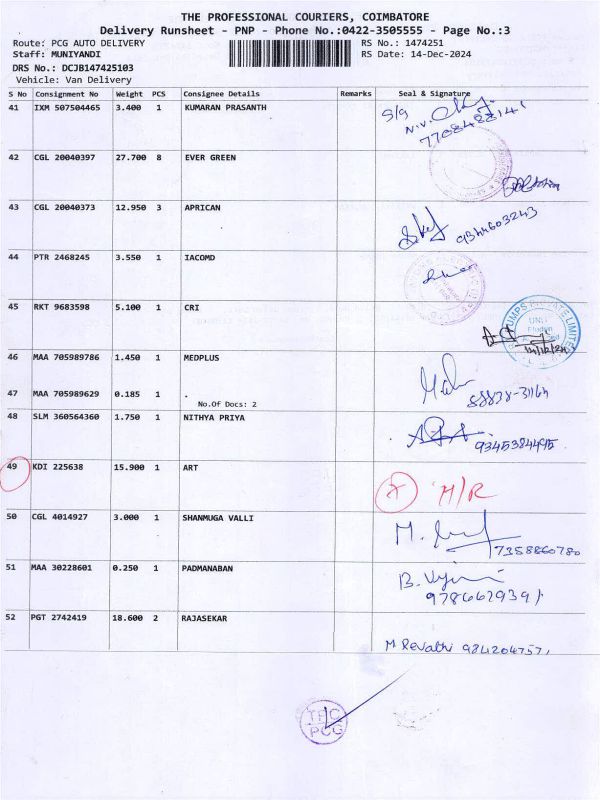 THE PROFESSIONAL COURIERS, COIMBATORE
Delivery Runsheet - PNP - Phone No.:0422-3505555 - Page No.:3
Route: PCG AUTO DELIVERY RS No.: 1474251
Staff: MUNIYANDI RS Date: 14-Dec-2024
DRS No.: DCJB147425103
Vehicle: Van Delivery
S No Consignment No Weight PCS Consignee Details Remarks Seal & Signature
41 IXM 507504465 3.400 1 KUMARAN PRASANTH
42 CGL 20040397 27.700 8 EVER GREEN
43 CGL 20040373 12.950 3 APRICAN
9344603243
44 PTR 2468245 3.550 1 IACOMD
45 RKT 9683598 5.100 1 CRI
14/12/24
46 MAA 705989786 1.450 1 MEDPLUS
47 MAA 705989629 0.185 1 .
No.Of Docs: 2
88838-31164
48 SLM 360564360 1.750 1 NITHYA PRIYA
9345384495
49 KDI 225638 15.900 1 ART
M/R
50 CGL 4014927 3.000 1 SHANMUGA VALLI
7358860780
51 MAA 30228601 0.250 1 PADMANABAN
52 PGT 2742419 18.600 2 RAJASEKAR
M Revathi 9842047571
PCG